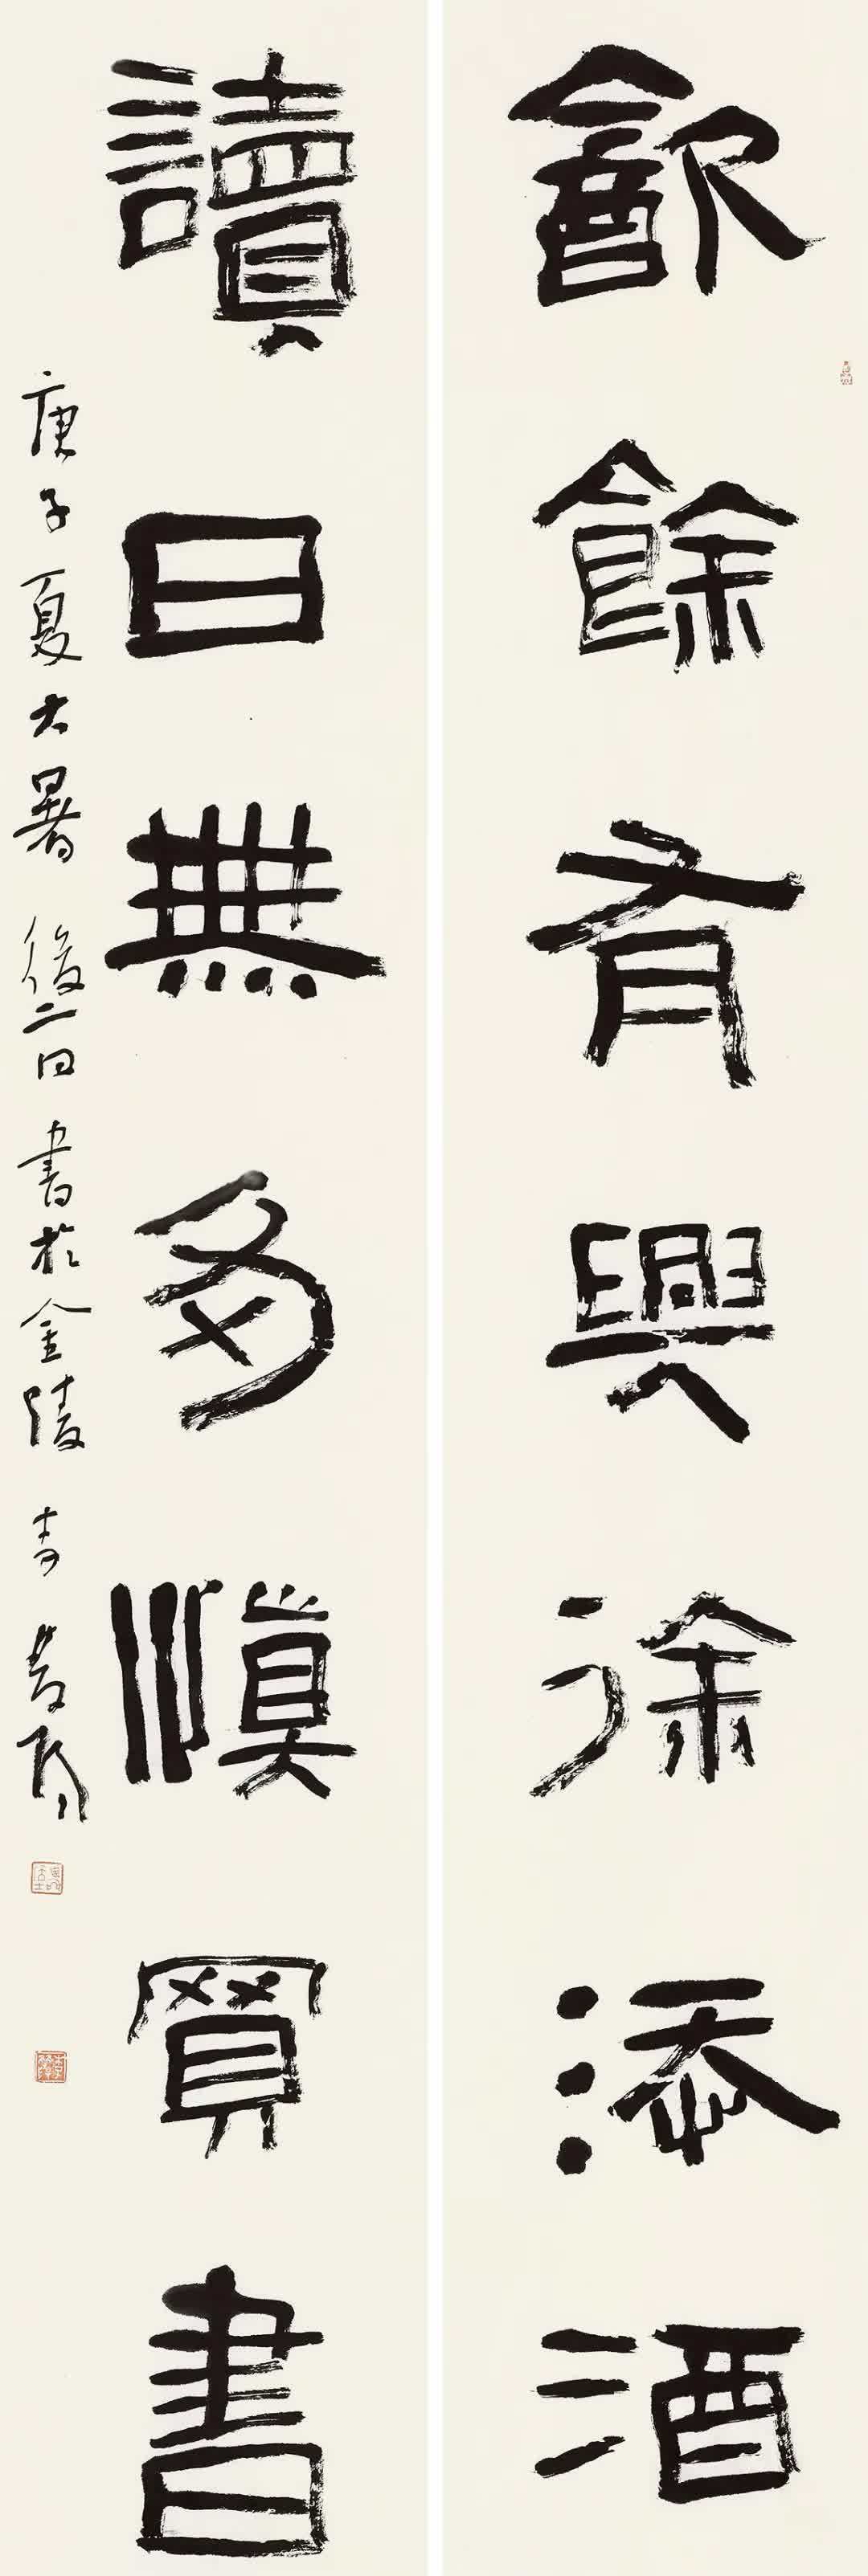 飲餘有興徐添酒
讀日無多慎買書
庚子夏大暑後二日書於金陵